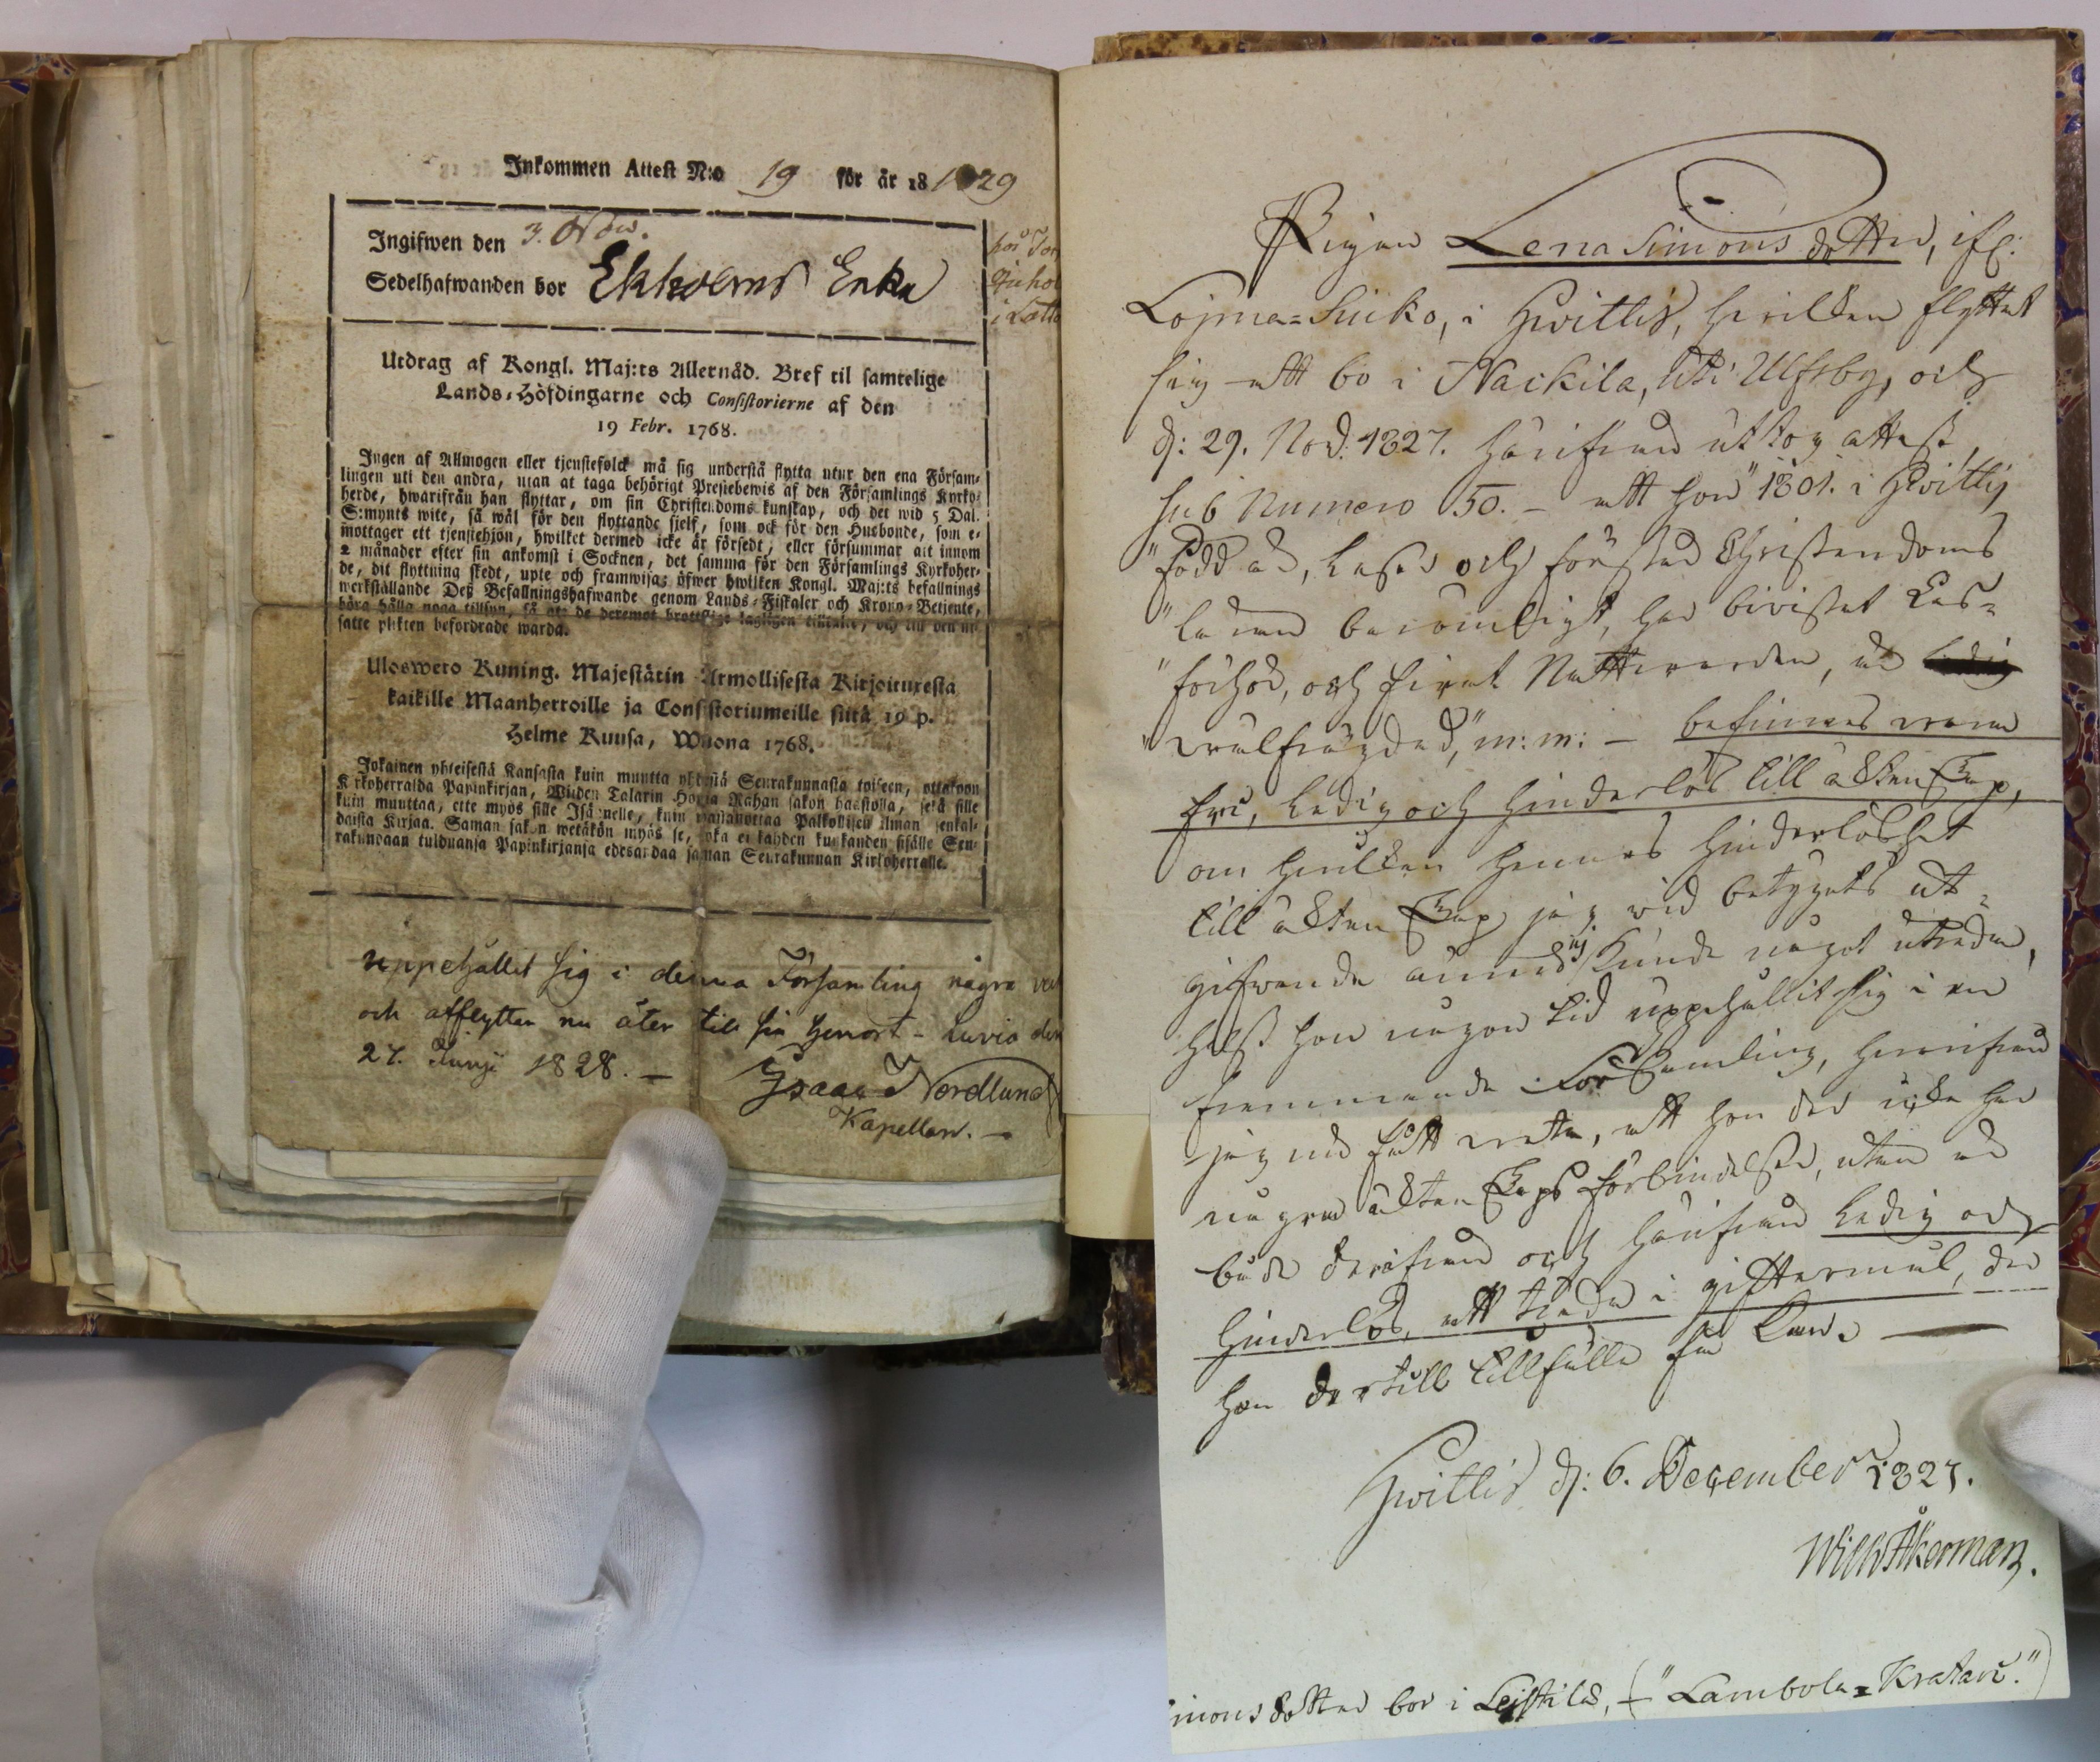 Inkommen Attest N:o 19 för år 18 1829
Ingifwen den 3. Nov.
Sedelhafwanden bor Ekholms Enka
Utdrag af Kongl. Maj:ts Allernåd. Bref til samtelige
Lands-Höfdingarne och Consistorierne af den
19 Febr. 1768.
Ingen af Allmogen eller tjenstefolck må sig understå flytta utur den ena Försam-
lingen uti den andra, utan at taga behörigt Prestebewis af den Församlings Kyrko-
herde, hwarifrån han flyttar, om sin Christendoms kunskap, och det wid 5 Dal.
S:mynts wite, så wäl för den flyttande sjelf, som ock för den Husbonde, som e-
mottager ett tjenstehjon, hwilket dermed icke är försedt, eller försummar att innom
2 månader efter sin ankomst i Socknen, det samma för den Församlings Kyrkoher-
de, dit flyttning skedt, upte och framwisa; öfwer hwilken Kongl. Maj:ts befallnings
werkställande Deß Befallningshafwande genom Lands-Fiskaler och Krono-Betjente,
böra hålla noga tillsyn, så at de deremot brottslige lagligen tiltalte, och til den ut-
satte plikten befordrade warda.
Uloswero Kuning. Majestätin Armollisesta Kirjoituxesta
kaikille Maanherroille ja Consistoriumeille siitä 19 p.
Helme Kuusa, Wuona 1768.
Jokainen yhteisestä Kansasta kuin muutta yhdestä Seurakunnasta toiseen, ottakoon
Kirkoherralda Papinkirjan, Wiiden Talarin Hopia Rahan sakon haastolla, sekä sille
kuin muuttaa, ette myös sille Isännelle, kuin wastanottaa Palkollisen ilman senkal-
daista Kirjaa. Saman sakon wetäkön myös se, joka ei kahden kuukauden sisälle Seu-
rakundaan tulduansa Papinkirjansa edesandaa saman Seurakunnan Kirkoherralle.
uppehållit sig i denna Församling några
och afflyttar nu åter till sin hemort - Luvia den
27. Junji 1828. —
Isaac Nordlund
Kapellan. —
Pigan Lena Simons dotter, ifr:
Lojma-Suiko, i Hvittis, hvilken flyttat
sig att bo i Nackila, uti Ulfsby, och
d: 29. Nov. 1827. härifrån uttog attest
sub Numero 50. - att hon "1801. i Hvittis
"född är, läser och förstår Christendoms
"läran beromligt, har bivistat Läs-
"förhör, och firat Nattvarden, är
"välfrägdad," m: m: — befinnes vara
fri, ledig och hinderlös till äktenskap,
om hvilken hennes hinderlöshet
till äktenskap jag vid betygets ut-
gifvande annars ej kunde något utreda,
helst hon någon tid uppehållit sig i en
främmande Församling, hvarifrån
jag nu fått veta, att hon der icke har
någon äktenskaps förbindelse, utan är
både derifrån och härifrån ledig och
hinderlös, att träda i giftermål, der
hon dertill tillfälle får kan. —
Hvittis d: 6. December 1827.
Wilh Åkerman.
imonsdotter bor i Leistilä, - ("Lambola-Kratari.")